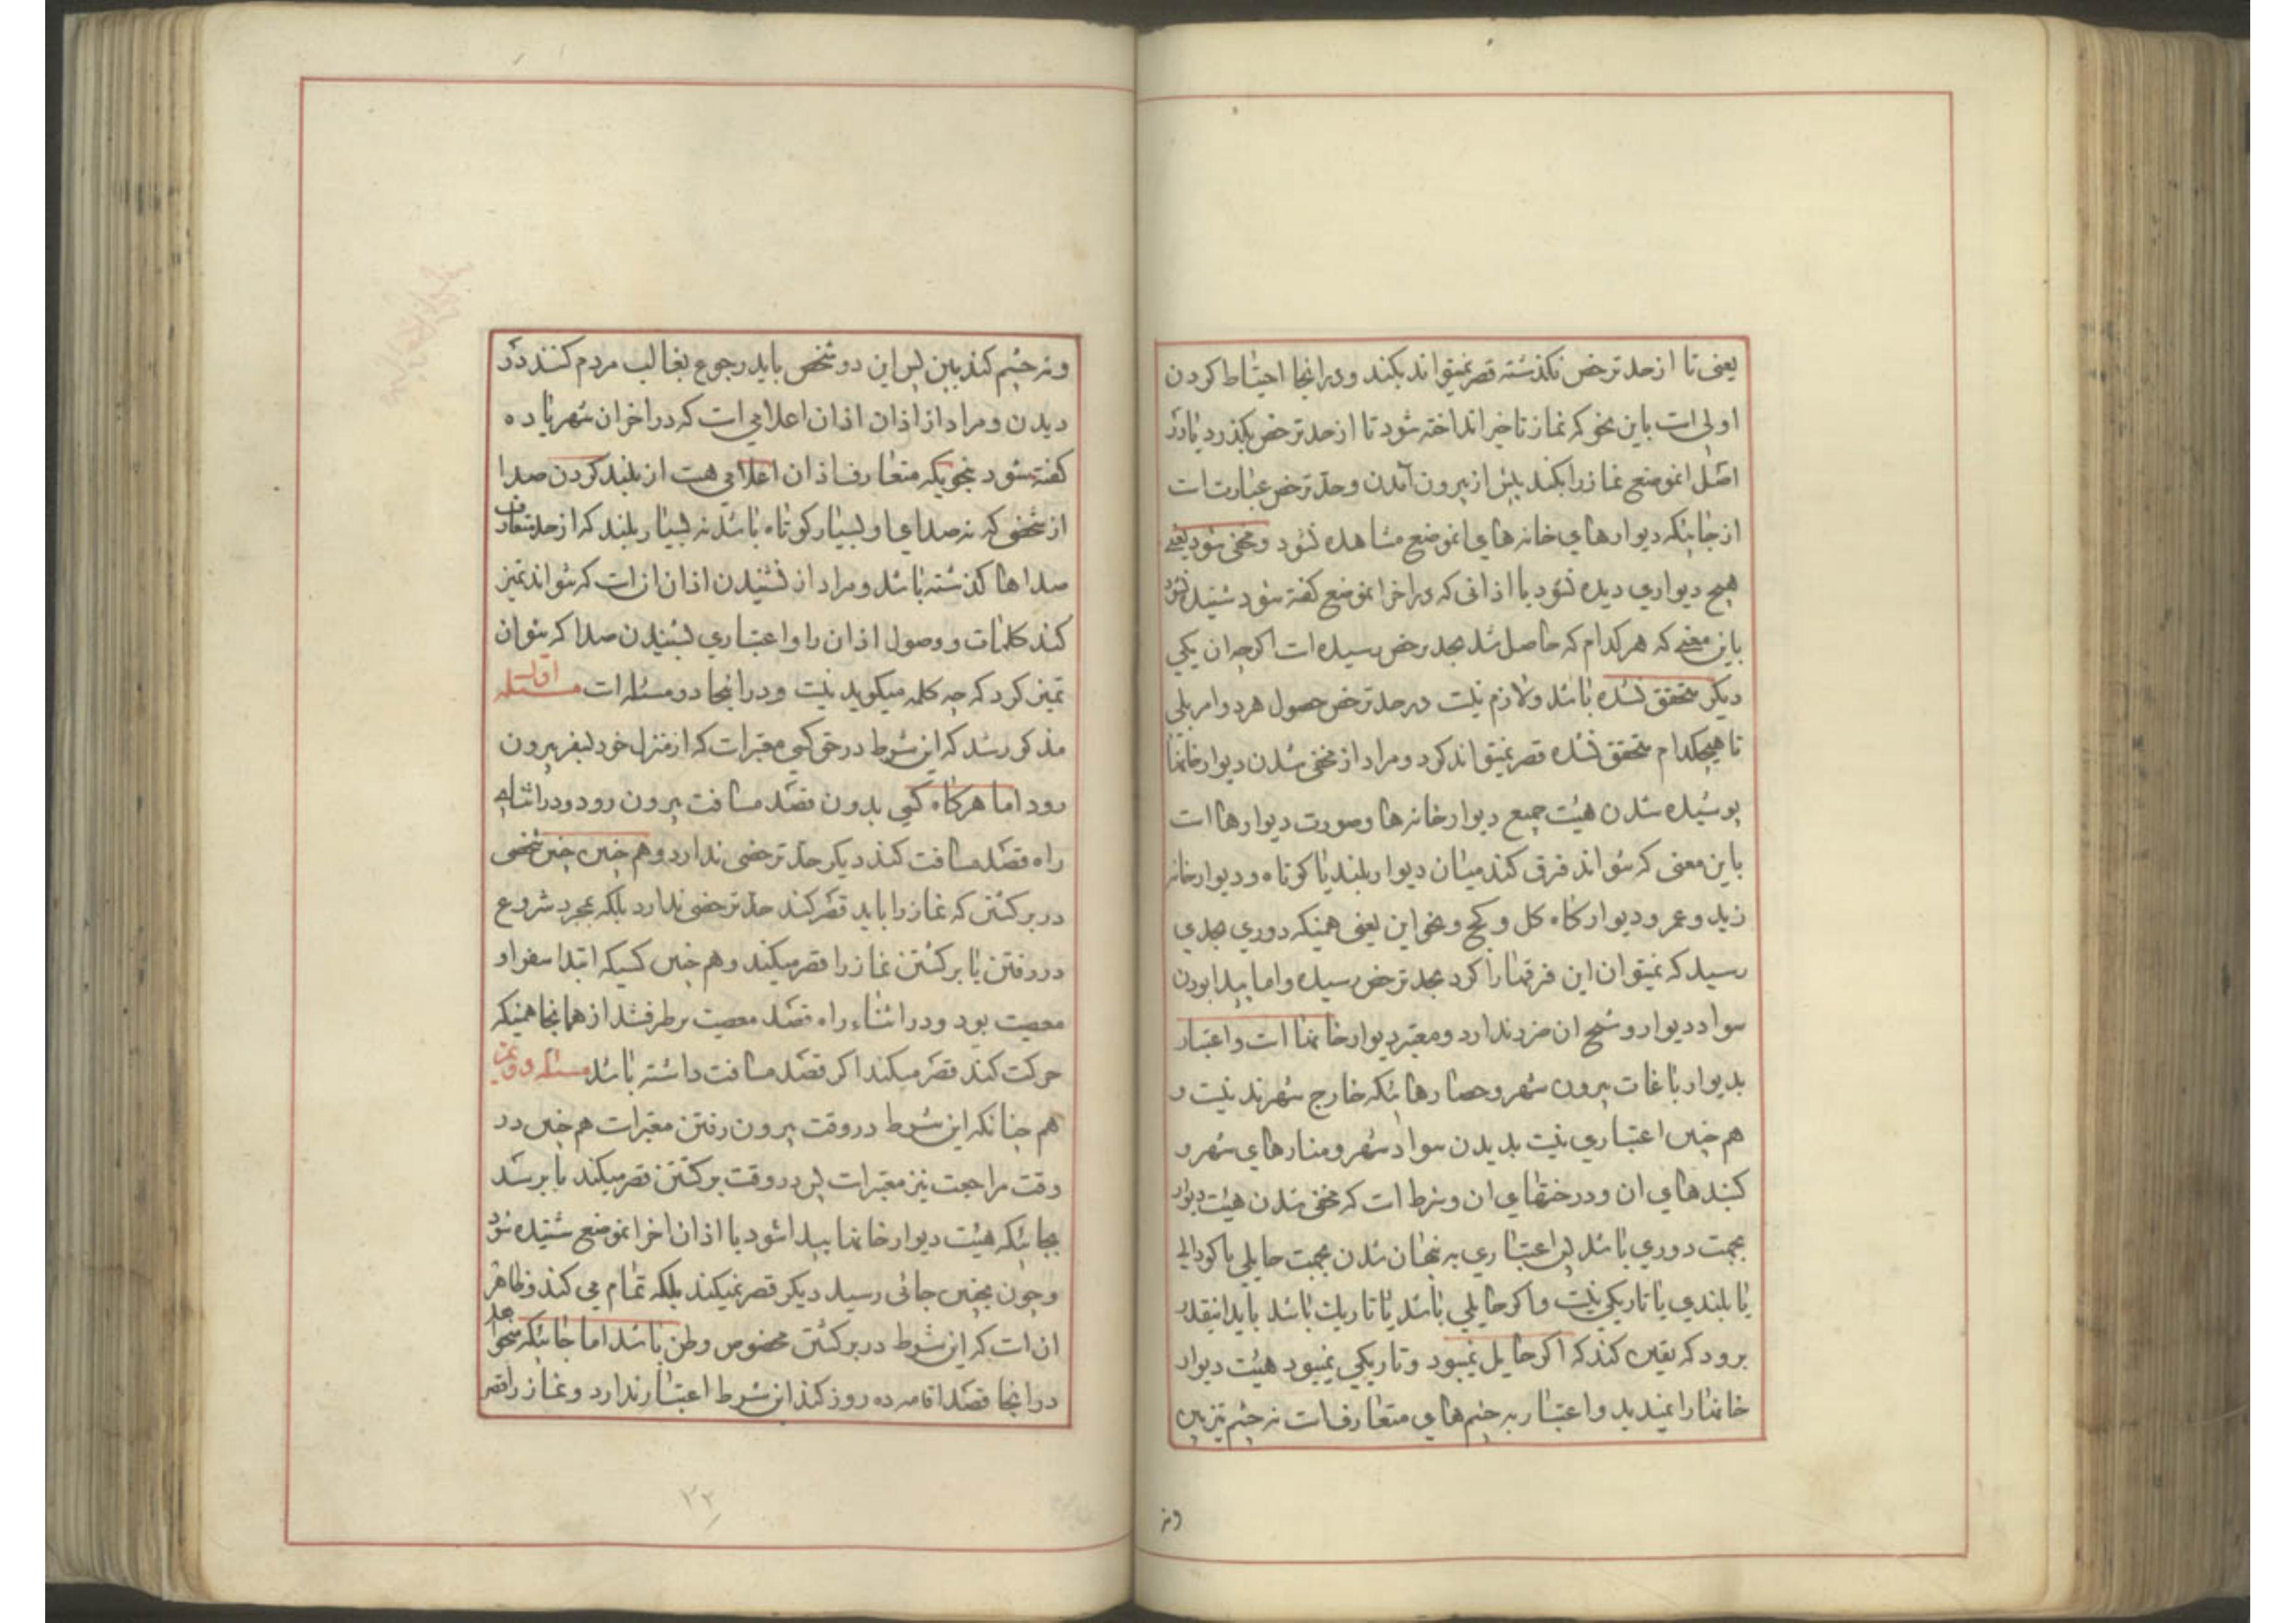 یعنی تا از حد ترخص نکذشته قصر نمیتواند بکند و در انجا احتیاط کردن
اولی است باین نحو که نماز تاخیر انداخته شود تا از حد ترخص بکذرد یا در
اصل انموضع نماز را بکند پیش از بیرون آمدن و حد ترخص عبارت است
از جائیکه دیوارهای خانه های انموضع مشاهده نشود و مخفی شود یعنی
هیچ دیواری دیده نشود یا اذانی که در اخر انموضع کفته شود شنیده نشود
باین معنی که هر کدام که حاصل شد بحد ترخص رسیده است اکرچه ان یکی
دیکر متحقق نشده باشد و لازم نیست در حد ترخص حصول هر دو امر بلی
تا هیچکدام متحقق نشده قصر نمیتواند کرد و مراد از مخفی شدن دیوار خانها
پوشیده شدن هیئت جمیع دیوار خانه ها و صورت دیوارها است
باین معنی که نتواند فرق کند میان دیوار بلند یا کوتاه و دیوار خانه
زید و عمر و دیوار کاه کل و کچ و نحو این یعنی همینکه دوری بحدی
رسید که نمیتوان این فرقها را کرد بحد ترخص رسیده و اما پیدا بودن
سواد دیوار و شبح ان ضرر ندارد و معتبر دیوار خانها است و اعتبار
بدیوار باغات بیرون شهر و حصارهائیکه خارج شهرند نیست و
هم چنین اعتباری نیست بدیدن سواد شهر و منارهای شهر و
کنبدهای ان و درختهای ان و شرط است که مخفی شدن هیئت دیوار
بجهت دوری باشد پس اعتباری به پنهان شدن بجهت حایلی یا کودالی
یا بلندی یا تاریکی نیست و اکر حایلی باشد یا تاریک باشد باید انیقدر
برود که یقین کند که اکر حایل نمیبود و تاریکی نمیبود هیئت دیوار
خانها را نمیدید و اعتبار به چشم های متعارف است نه چشم تیز بین
ونه
ونه چشم کند بین پس این دو شخص باید رجوع بغالب مردم کنند در
دیدن و مراد از اذان اذان اعلامی است که در اخر ان شهر یا ده
کفته شود بنحویکه متعارف اذان اعلامی هست از بلند کردن صدا
از شخصی که نه صدای او بسیار کوتاه باشد نه بسیار بلند که از حد متعارف
صداها کذشته باشد و مراد از نشنیدن اذان ان است که نتواند تمیز
کند کلمات و وصول اذان را و اعتباری بشنیدن صدا که نتوان
تمیز کرد که چه کلمه میکوید نیست و در اینجا دو مسئله است مسئله اول
مذکور شد که این شرط در حق کسی معتبر است که از منزل خود بسفر بیرون
رود اما هرکاه کسی بدون قصد مسافت بیرون رود و در اثنای
راه قصد مسافت کند دیکر حد ترخصی ندارد و هم چنین چنین شخصی
در برکشتن که نماز را باید قصر کند حد ترخصی ندارد بلکه بمجرد شروع
در رفتن یا برکشتن نماز را قصر میکند و هم چنین کسیکه ابتدا سفر او
معصیت بود و در اثناء راه قصد معصیت برطرف شد از همانجا همینکه
حرکت کند قصر میکند اکر قصد مسافت داشته باشد مسئله دویم
هم چنانکه این شرط در وقت بیرون رفتن معتبر است هم چنین در
وقت مراجعت نیز معتبر است پس در وقت برکشتن قصر میکند تا برسد
بجائیکه هیئت دیوار خانها پیدا شود یا اذان اخر انموضع شنیده شود
و چون بچنین جائی رسید دیکر قصر نمیکند بلکه تمام می کند و ظاهر
ان است که این شرط در برکشتن مخصوص وطن باشد اما جائیکه میخواهد
در انجا قصد اقامه ده روز کند این شرط اعتبار ندارد و نماز را قصر
۲۲